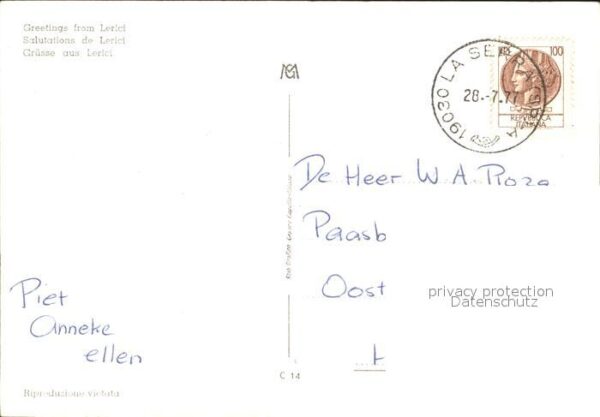 Greetings from Lerici
Salutations de Lerici
Grüsse aus Lerici
100
19030 LA SERRA
28.-7.77
REPUBBLICA
ITALIANA
De Heer W A
Paasb
Oost
privacy protection
Datenschutz
t
Piet
Anneke
ellen
C 14
Riproduzione vietata